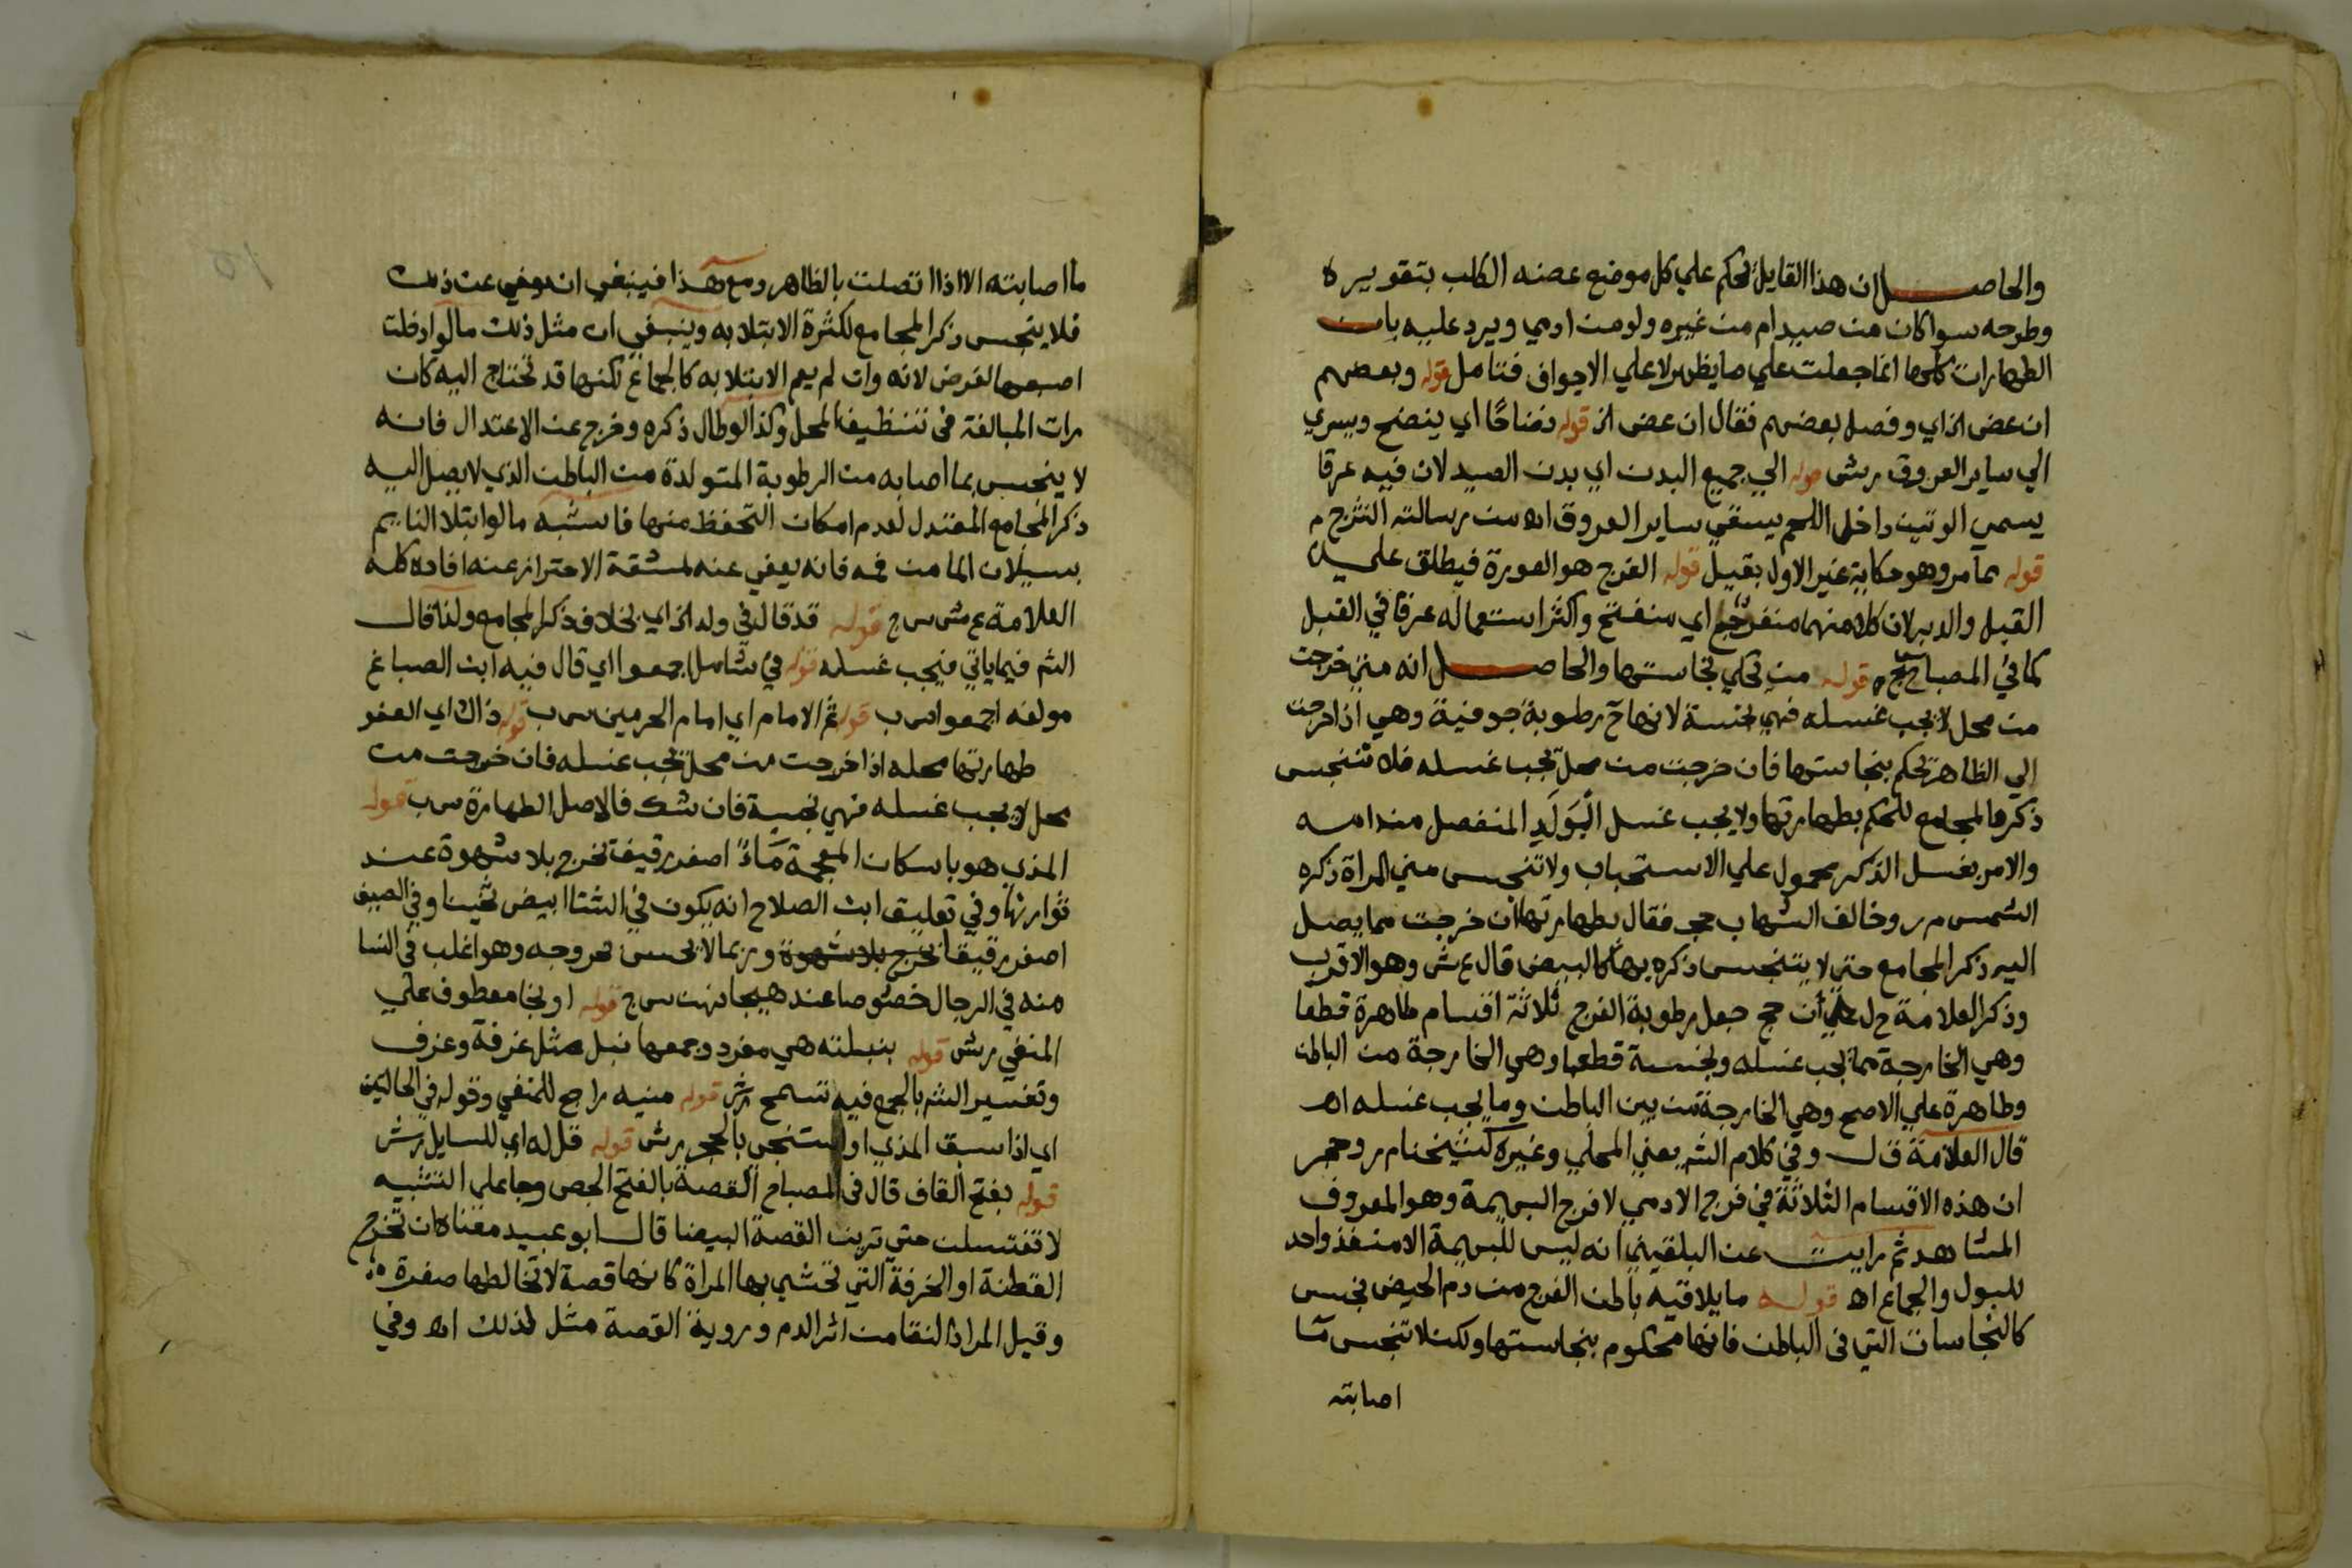 والحاصل ان هذا القايل يحكم علي كل موضع عضه الكلب بتقويره
وطرحه سواكان من صيد ام من غيره ولو من ادمي ويرد عليه بان
الطهارات كلها انما جعلت علي ما يظهر لا علي الاجواف فتامل قوله وبعضهم
ان عض الخ اي وفصل بعضهم فقال ان عض الخ قوله نضاحًا اي ينضح ويسري
الي ساير العروق رش قوله الي جميع البدن اي بدن الصيد لان فيه عرقا
يسمي الوتين داخل اللحم يسقي ساير العروق اه من رسالته الشرح م
قوله مما مر وهو حكاية غير الاول بقيل قوله الفرج هو العورة فيطلق علي
القبل والدبر لان كلا منهما منفرج اي منفتح واكثر استعماله عرفا في القبل
كما في المصباح قوله من يحكي نجاستها والحاصل انه متي خرجت
من محل لا يجب غسله فهي نجسة لانها ح رطوبة جوفية وهي اذا خرجت
الي الظاهر يحكم بنجاستها فان خرجت من محل يجب غسله فلا تنجس
ذكر المجامع للحكم بطهارتها ولا يجب غسل الوَلَدِ المنفصل من امه
والامر بغسل الذكر محمول علي الاستحباب ولا تنجس مني المراة ذكره
الشمس م ر وخالف الشهاب حجر فقال بطهارتها ان خرجت مما يصل
اليه ذكر المجامع حتي لا يتنجس ذكره بها كالبيض قال ع ش وهو الاقرب
وذكر العلامة ح ل ان حج جعل رطوبة الفرج ثلاثة اقسام طاهرة قطعا
وهي الخارجة مما يجب غسله ونجسة قطعا وهي الخارجة من الباطن
وطاهرة علي الاصح وهي الخارجة من بين الباطن وما يجب غسله اه
قال العلامة ق ل وفي كلام الشم يعني المحلي وغيره كشيخنا م ر وحجر
ان هذه الاقسام الثلاثة في فرج الادمي لا فرج البهيمة وهو المعروف
المشاهد ثم رايت عن البلقيني انه ليس للبهيمة الا منفذ واحد
للبول والجماع اه قوله ما يلاقيه باطن الفرج من دم الحيض نجس
كالنجاسات التي في الباطن فانها محكوم بنجاستها ولكن لا تنجس ما
اصابته
ما اصابته الا اذا اتصلت بالظاهر ومع هذا فينبغي ان يعفي عن ذلك
فلا ينجس ذكر المجامع لكثرة الابتلا به وينبغي ان مثل ذلك ما لو ادخلت
اصبعها لغرض لانه وان لم يعم الابتلا به كالجماع لكنها قد تحتاج اليه كان
رات المبالغة في تنظيف المحل وكذا لو طال ذكره وخرج عن الاعتدال فانه
لا ينجس بما اصابه من الرطوبة المتولدة من الباطن الذي لا يصل اليه
ذكر المجامع المعتدل لعدم امكان التحفظ منها فاشبه ما لو ابتلا النايم
بسيلان الما من فمه فانه يعفي عنه لمشقة الاحتراز عنه افاده كله
العلامة ع ش س ج قوله قد قال في ولد الخ اي بخلاف ذكر المجامع ولذا قال
الشم فيما ياتي فيجب غسله قوله في شامل اجمعوا اي قال فيه ابن الصباغ
مولفه اجمعوا س ب قوله ثم الامام اي امام الحرمين س ب قوله ذاك اي العفو
طهارتها محله اذا خرجت من محل يجب غسله فان خرجت من
محل لا يجب غسله فهي نجسة فان شك فالاصل الطهارة س ب قوله
المذي هو باسكان المعجمة مَاءً اصفر رقيق تخرج بلا شهوة عند
ثورانها وفي تعليق ابن الصلاح انه يكون في الشتا ابيض ثخينا وفي الصيف
اصفر رقيقا تخرج بلا شهوة وربما لا يحس بخروجه وهو اغلب في النسا
منه في الرجال خصوصا عند هيجانهن س ج قوله او نجا معطوف علي
المنفي رش قوله بنبلته هي مفرد وجمعها نبل مثل غرفة وغرف
وتفسير الشم بالجمع فيه تسمح رش قوله منيه راجع للمنفي وقوله في الحاليمن
اي اذا سبق المذي او استنجي بالحجر رش قوله قل له اي للسايل رش
قوله بفتح القاف قال في المصباح القصة بالفتح الجص وجا علي التشبيه
لا تغتسلن حتي ترين القصة البيضا قال ابو عبيد معناه ان تخرج
القطنة او الخرقة التي تحتشي بها المراة كانها قصة لا تخالطها صفرة
وقيل المراد النقا من اثر الدم وروية القصة مثل لذلك اه وفي